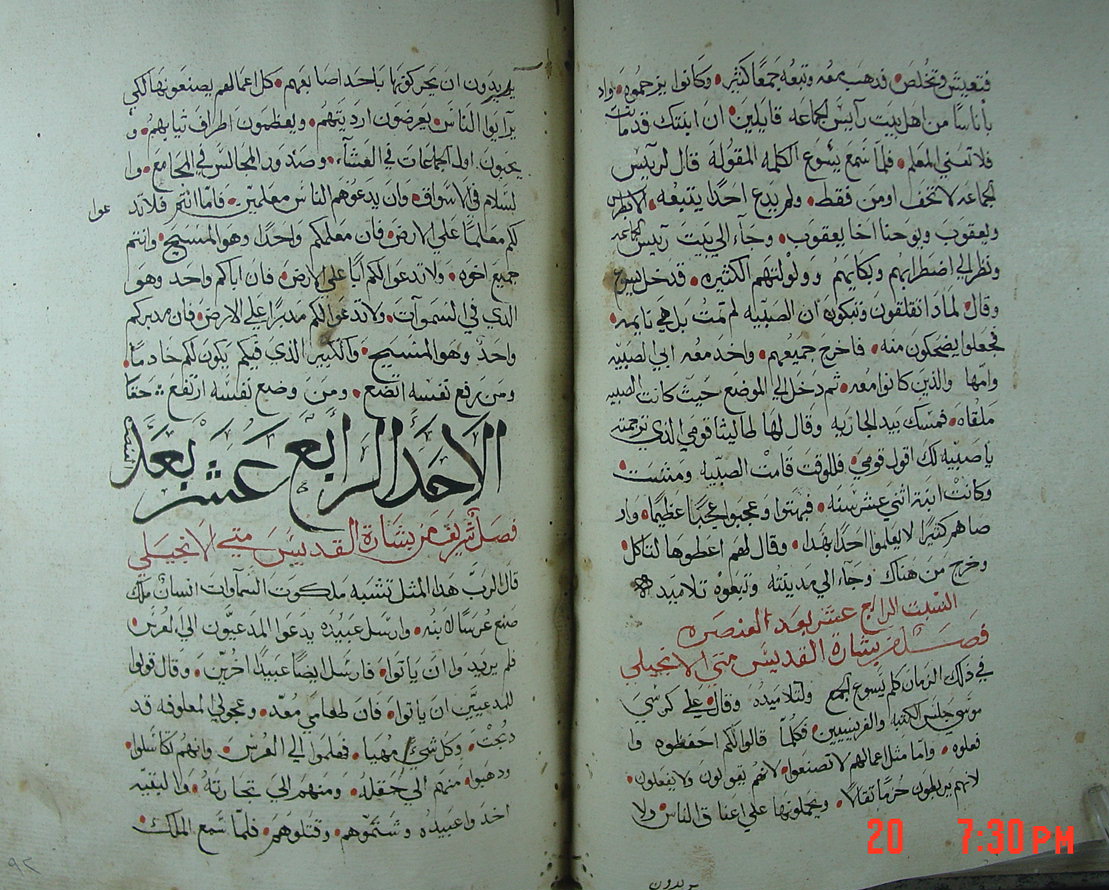 فتعيش وتخلص فذهب معه وتبعه جمعًا كثير وكانوا يزحموه واد
بأناسًا من اهل بيت رآيس الجماعه قايلين ان ابنتك قد ماتت
فلا تعني المعلم فلما سمع يسوع الكلمه المقوله قال لرييس
الجماعه لا تخف اومن فقط ولم يدع احدًا يتبعه الا بطرس
ويعقوب ويوحنا اخا يعقوب وجآء الي بيت رييس الجماعه
ونظر الي اضطرابهم وبكايهم وولولتهم الكثيره فدخل يسوع
وقال لماذا تقلقون وتبكون ان الصبيه لم تمت بل هي نايمه
فجعلوا يضحكون منه فاخرج جميعهم واخد معه ابي الصبيه
وامها والذين كانوا معه ثم دخل الي الموضع حيث كانت الصبيه
ملقاه فمسك بيد الجاريه وقال لها طاليثا قومي الذي ترجمته
يا صبيه لك اقول قومي فللوقت قامت الصبيه ومشيت
وكانت ابنة اثني عشر سنه فبهتوا وعجبوا عجبًا عظيمًا واو
صاهم كثيرًا لا يعلموا احدًا بهدا وقال لهم اعطوها لتاكل
وخرج من هناك وجاء الي مدينته وتبعوه تلاميده
السبت الرابع عشر بعد العنصره
فصل من بشارة القديس متي الانجيلي
في ذلك الزمان كلم يسوع الجمع ولتلاميده وقال علي كرسي
موسي جلس الكتبه والفريسيين فكلما قالوا لكم احفظوه وا
فعلوه واما مثل اعمالهم لا تصنعوا لانهم يقولون ولا يفعلون
لانهم يربطون حزمًا ثقالًا ويحملونها علي اعناق الناس ولا
يريدون
يريدون ان يحركوها باحد اصابعهم وكل اعمالهم يصنعونها لكي
يرآيوا الناس يعرضون ارديتهم ويعظمون اطراف ثيابهم و
يحبون اول الجماعات في العشآء وصدور المجالس في المجامع وا
لسلام في الاسواق وان يدعوهم الناس معلمين فاما انتم فلا تد
عوا
لكم معلمًا علي الارض فان معلمكم واحدًا وهو المسيح وانتم
جميع اخوه ولا تدعوا لكم ابًا علي الارض فان اباكم واحد وهو
الذي في السموات ولا تدعوا لكم مدبرًا علي الارض فان مدبركم
واحد وهو المسيح والكبير الذي فيكم يكون لكم خادمًا
ومن يرفع نفسه اتضع ومن وضع نفسه ارتفع حقا
الاحد الرابع عشر بعد
فصل شريف من بشارة القديس متي الانجيلي
قال الرب هدا المثل تشبه ملكوت السماوات انسان ملك
صنع عرسًا لابنه وارسل عبيده يدعوا المدعيون الي العرس
فلم يريدوا ان ياتوا فارسل ايضًا عبيدًا اخرين وقال قولوا
للمدعيين ان ياتوا فان طعامي معد وعجولي المعلوفه قد
دبحت وكل شيء مهيا فهلموا الي العرس وانهم تكاسلوا
ودهبوا منهم الي حقله ومنهم الي تجارته والبقيه
اخدوا عبيده وشتموهم وقتلوهم فلما سمع الملك
٩٢
20 7:30 PM